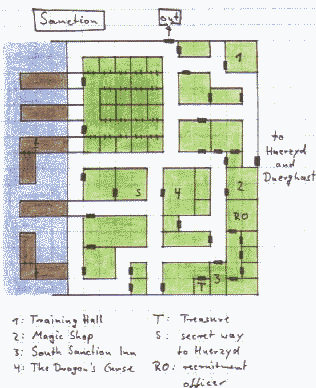 Sanction
out
1
to
Huerzyd
and
Duerghast
S
4
2
RO
T
3
1: Training Hall
2: Magic Shop
3: South Sanction Inn
4: The Dragon's Curse
T: Treasure
S: secret way
to Huerzyd
RO: recruitment
officer